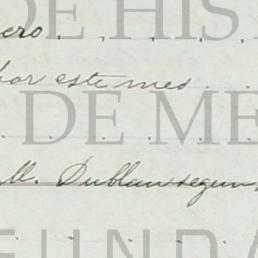 DE HIS
ero . , . , .
por este mes . .
DE ME
M. Dublan segun
GUNDA